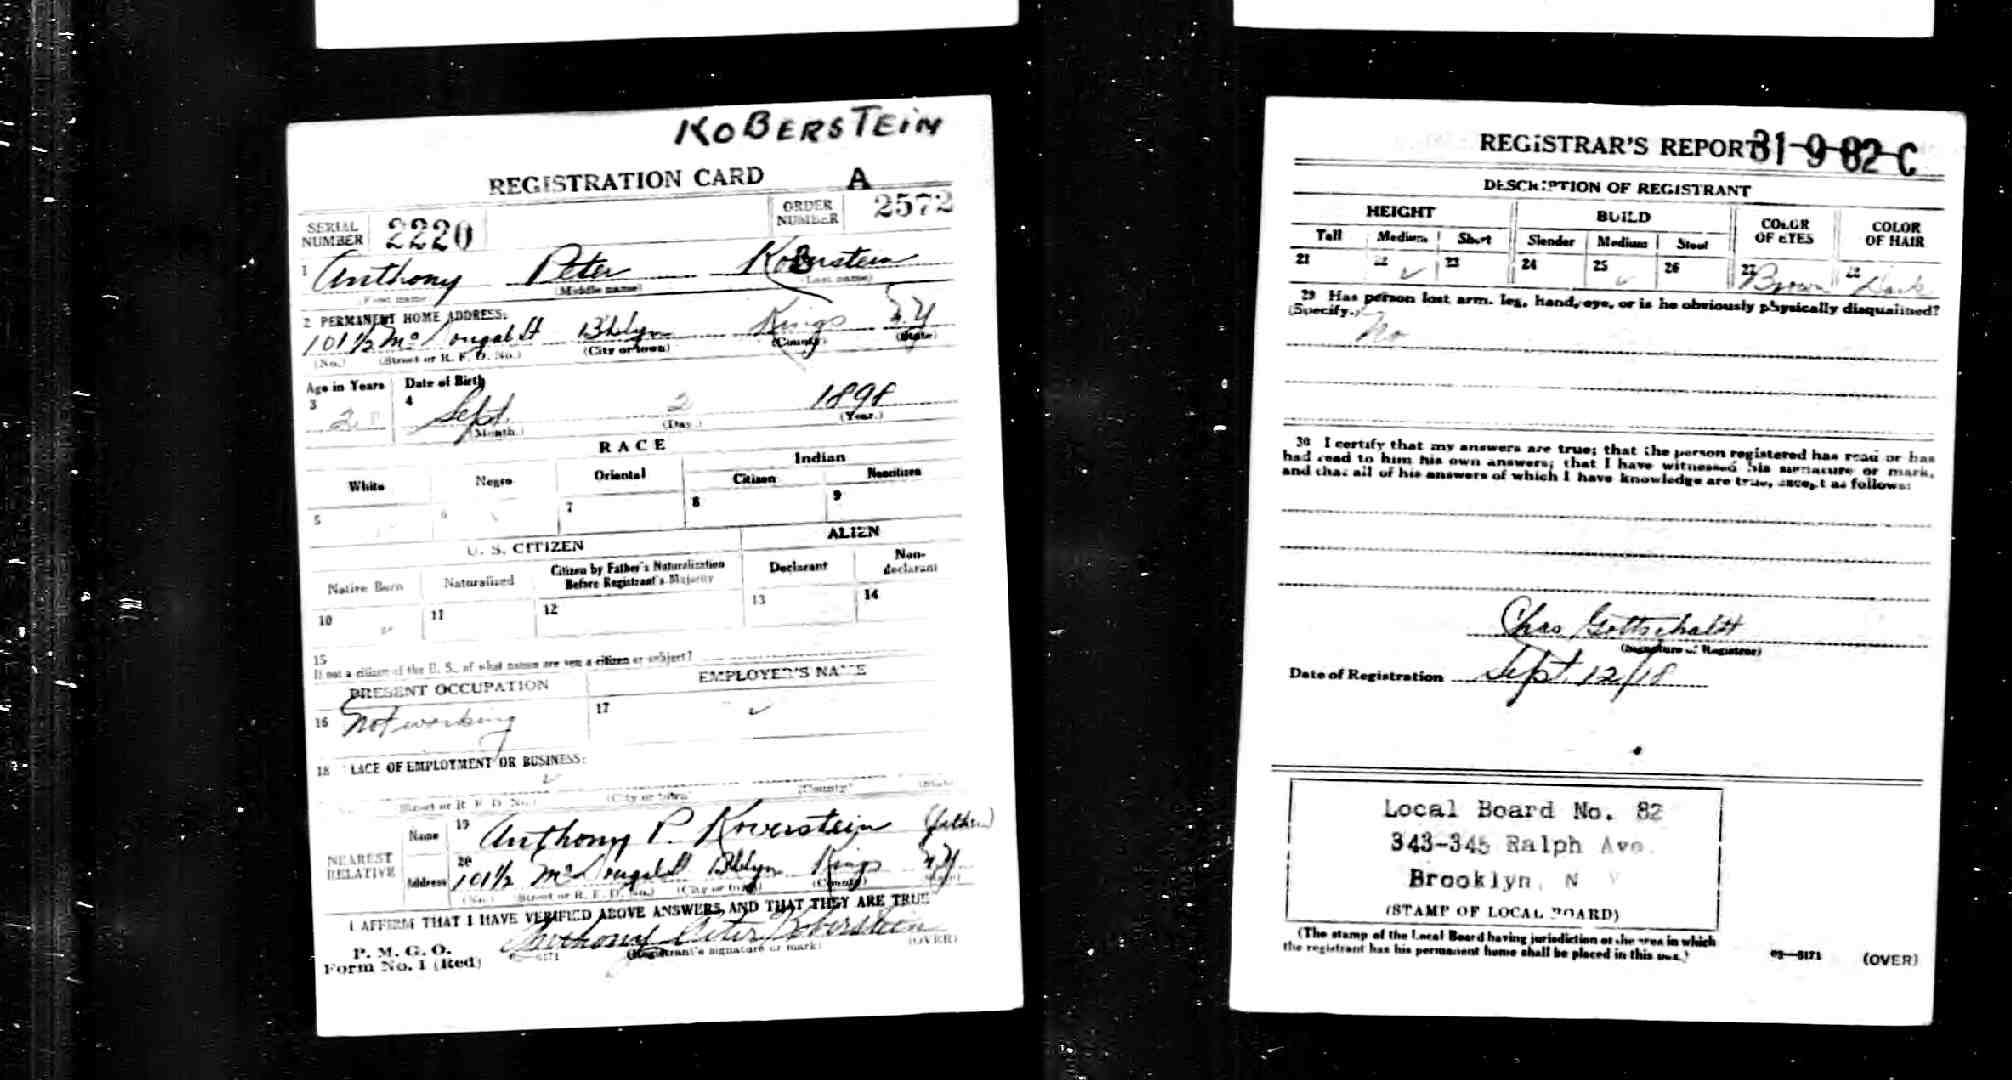 KOBERSTEIN
REGISTRATION CARD A
SERIAL NUMBER 2220 ORDER NUMBER 2572
1 Anthony Peter Koberstein
(First name) (Middle name) (Last name)
2 PERMANENT HOME ADDRESS:
101½ McDougal St Bklyn Kings N.Y
(No.) (Street or R. F. D. No.) (City or town) (County) (State)
Age in Years Date of Birth
3 4 Sept. 2 1898
(Month.) (Day.) (Year.)
RACE
White Negro Oriental Indian
Citizen Noncitizen
5 6 7 8 9
U. S. CITIZEN ALIEN
Native Born Naturalized Citizen by Father's Naturalization Before Registrant's Majority Declarant Non-declarant
10 11 12 13 14
15
If not a citizen of the U. S., of what nation are you a citizen or subject?
PRESENT OCCUPATION EMPLOYER'S NAME
16 Not working 17
18 LACE OF EMPLOYMENT OR BUSINESS:
(Street or R. F. D. No.) (City or town) (County) (State)
NEAREST RELATIVE Name 19 Anthony P. Koverstein (father)
Address 20 101½ McDougal St Bklyn Kings N.Y
(No.) (Street or R. F. D. No.) (City or town) (County) (State)
I AFFIRM THAT I HAVE VERIFIED ABOVE ANSWERS AND THAT THEY ARE TRUE
P. M. G. O.
Form No. 1 (Red) Anthony Peter Koberstein
(Registrant's signature or mark) (OVER)
REGISTRAR'S REPORT 31-9-82-C
DESCRIPTION OF REGISTRANT
HEIGHT BUILD COLOR OF EYES COLOR OF HAIR
Tall Medium Short Slender Medium Stout
21 22 ✓ 23 24 25 ✓ 26 27 Brown 28 Dark
29 Has person lost arm, leg, hand, eye, or is he obviously physically disqualified?
(Specify.) No
30 I certify that my answers are true; that the person registered has read or has
had read to him his own answers; that I have witnessed his signature or mark,
and that all of his answers of which I have knowledge are true, except as follows:
Chas Gottschaldt
(Signature of Registrar)
Date of Registration Sept. 12/18
Local Board No. 82
343-345 Ralph Ave.
Brooklyn, N Y
(STAMP OF LOCAL BOARD)
(The stamp of the Local Board having jurisdiction of the area in which
the registrant has his permanent home shall be placed in this box.)
03—6171 (OVER)